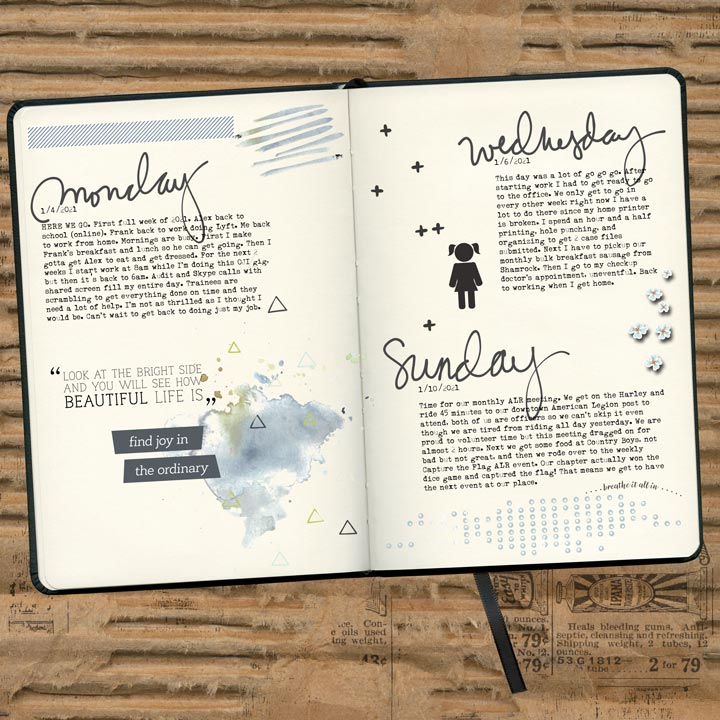 monday
1/4/2021
HERE WE GO. First full week of 2021. Alex back to
school (online). Frank back to work doing Lyft. Me back
to work from home. Mornings are busy. First I make
Frank's breakfast and lunch so he can get going. Then I
gotta get Alex to eat and get dressed. For the next 2
weeks I start work at 8am while I'm doing this OJI gig,
but then it s back to 6am. Adit and Skype calls with
shared screen fill my entire day. Trainees are
scrambling to get everything done on time and they
need a lot of help. I'm not as thrilled as I thought I
would be. Can't wait to get back to doing just my job.
“LOOK AT THE BRIGHT SIDE
AND YOU WILL SEE HOW
BEAUTIFUL LIFE IS„
find joy in
the ordinary
wednesday
1/6/2021
This day was a lot of go go go. After
starting work I had to get ready to go
to the office. We only get to go in
every other week; right now I have a
lot to do there since my home printer
is broken. I spend an hour and a half
printing, hole punching, and
organizing to get 2 case files
submitted. Next I have to pickup our
monthly bulk breakfast sausage from
Shamrock. Then I go to my checkup
doctor's appointment, uneventful. Back
to working when I get home.
Sunday
1/10/2021
Time for our monthly ALR meeting. We get on the Harley and
ride 45 minutes to our downtown American Legion post to
attend, both of us are officers so we can't skip it even
though we are tired from riding all day yesterday. We are
proud to volunteer time but this meeting dragged on for
almost 2 hours. Next we got some food at Country Boys, not
bad but not great, and then we rode over to the weekly
Capture the Flag ALR event. Our chapter actually won the
dice game and captured the flag! That means we get to have
the next event at our place.
.....breathe it all in.....
ce. Con-
e oils used
ing weight,
43¢
ounces.
No. 1.
79¢
No.
79¢
IPANA
Heals bleeding gums. Anti-
septic, cleansing and refreshing.
Shipping weight, 2 tubes, 12
ounces.
53G1812—
tube
2 for 79